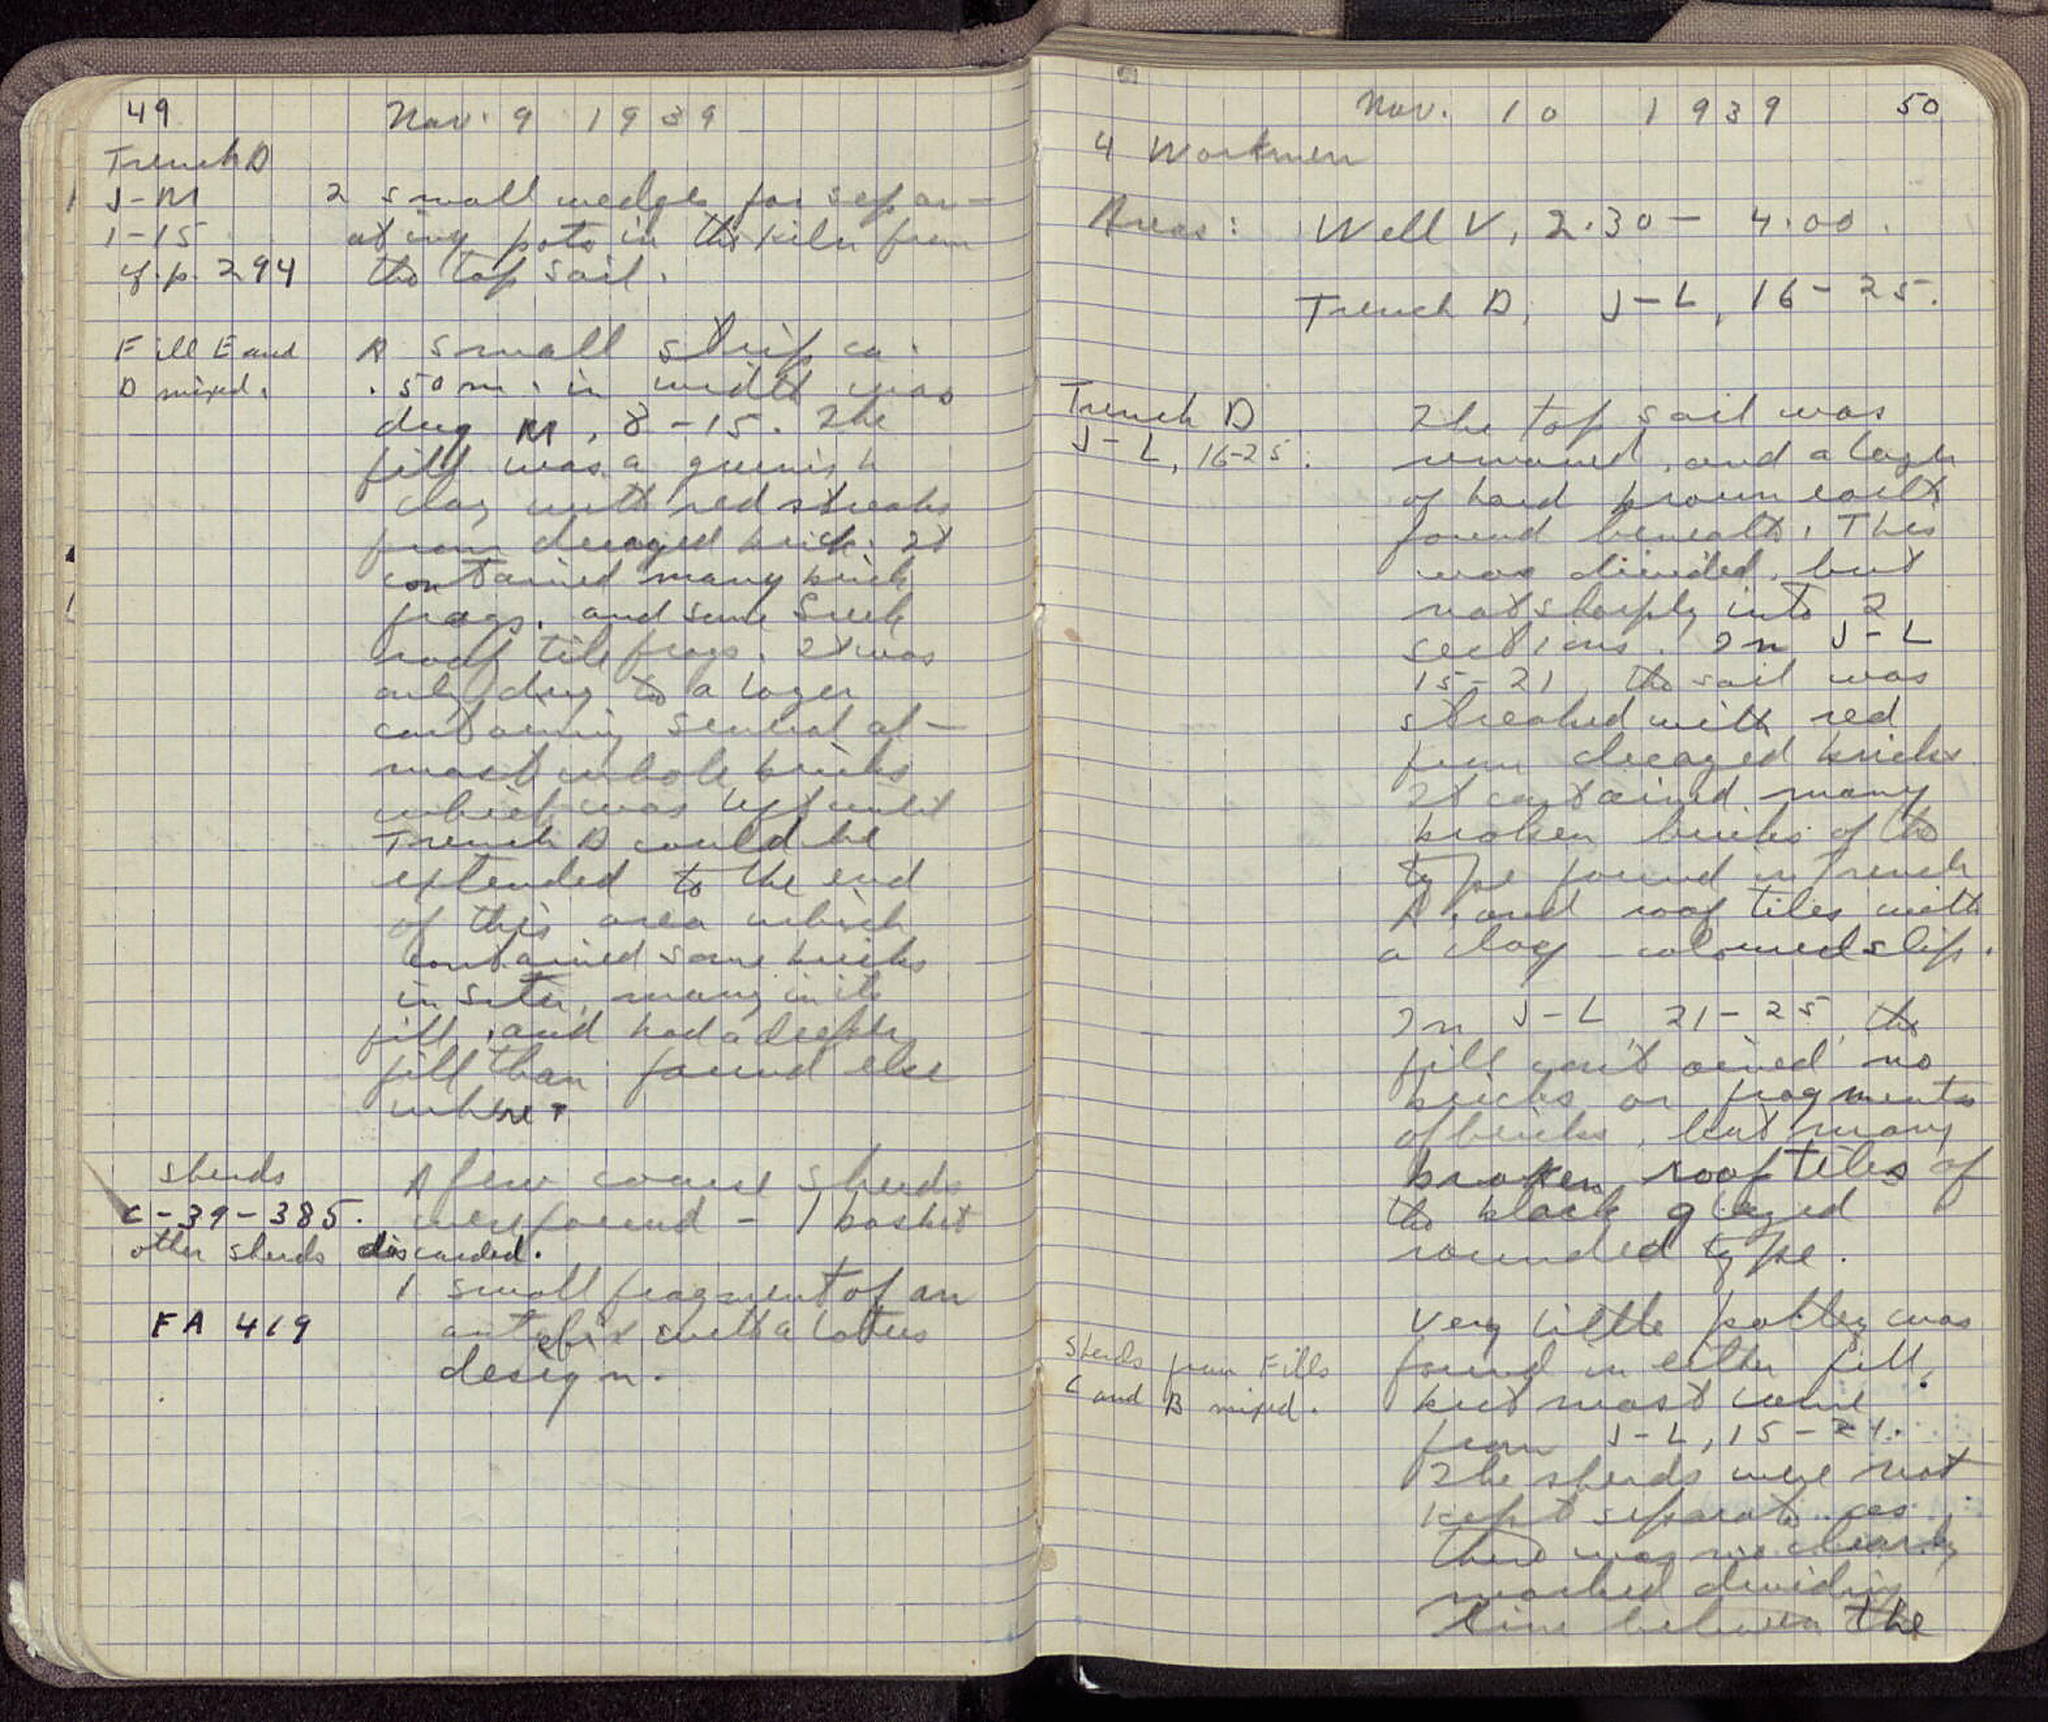 49
Nov. 9 1939
Trench D
J-M
1-15
cf. p. 294
2 small wedges for separ-
ating pots in the kiln from
the top soil.
Fill E and
D mixed.
A small strip ca.
.50 m. in width was
dug M, 8-15. The
fill was a greenish
clay with red streaks
from decayed brick. It
contained many brick
frags. and some Greek
roof tile frags. It was
only dug to a layer
containing several al-
most whole bricks
which was left until
Trench D could be
extended to the end
of this area which
contained some bricks
in situ, many in its
fill, and had a deeper
fill than found else
where.
sherds
C-39-385.
other sherds discarded.
A few coarse sherds
were found - 1 basket
FA 419
1 small fragment of an
antefix with a lotus
design.
Nov. 10 1939
50
4 Workmen
Areas: Well V, 2.30 - 4.00.
Trench D, J-L, 16-25.
Trench D
J-L, 16-25.
The top soil was
removed, and a layer
of hard brown earth
found beneath. This
was divided, but
not sharply into 2
sections. In J-L
15-21, the soil was
streaked with red
from decayed bricks.
It contained many
broken bricks of the
type found in Trench
A, and roof tiles with
a clay-coloured slip.
In J-L 21-25, the
fill contained no
bricks or fragments
of bricks, but many
broken roof tiles of
the black glazed
rounded type.
Sherds from Fills
C and B mixed.
Very little pottery was
found in either fill,
but most came
from J-L, 15-21.
The sherds were not
kept separate as
there was no clearly
marked dividing
line between the